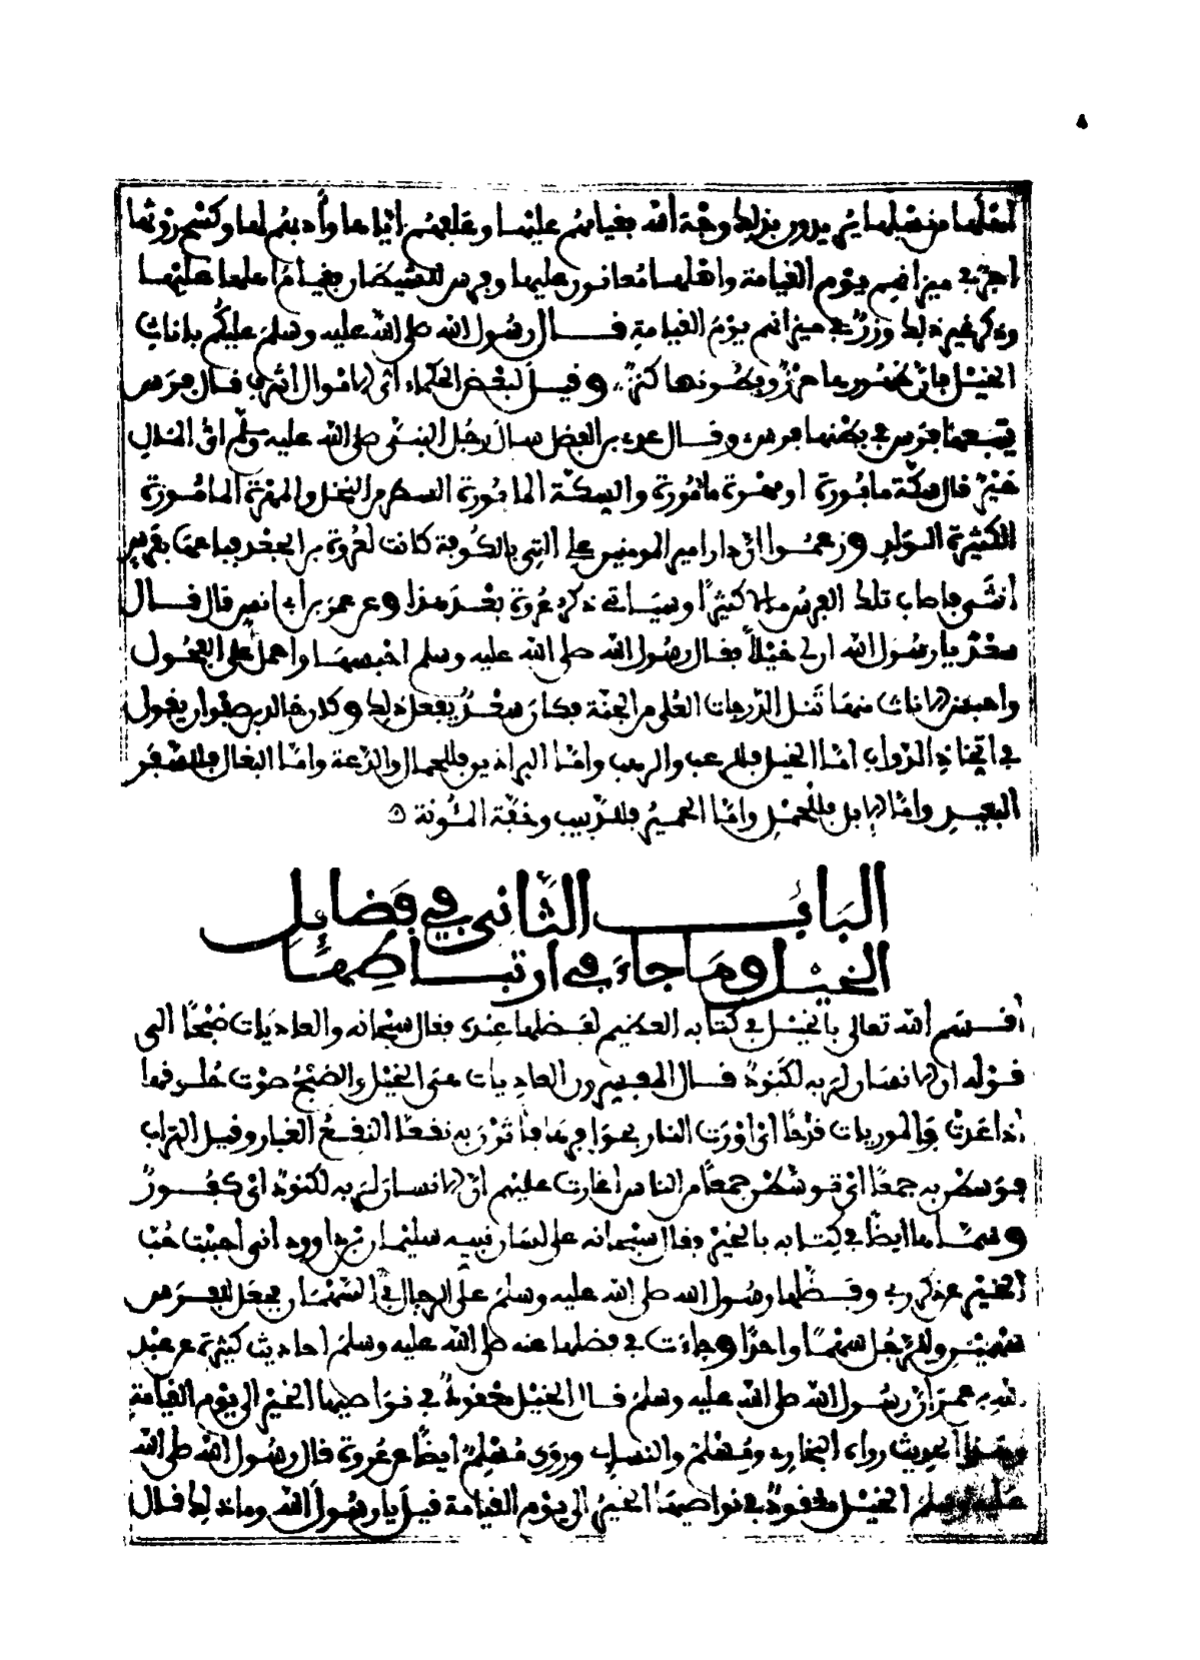 يريدون بذلك وجه الله بقيامهم عليها وعلفهم اياها وأدبهم لها وكسح روثها
اجر في ميزانهم يوم القيامة واهلها معانون عليها وفرس للشيطان فقيام اهلها عليها
وذكر غير ذلك وزر في ميزانهم يوم القيامة فــال رسول الله صلى الله عليه وسلم عليكم باناث
الخيل فان ظهورها حرز وبطونها كنز وقيل لبعض الحكماء اي الاموال اشرف قال فرس
يتبعها فرس في بطنها فرس وقال عمر بن الفضل سال رجل النبي صلى الله عليه وسلم اي المال
خير قال سكة مابورة او مهرة مامورة والسكة المابورة السطر من النخل والمهرة المامورة
الكثيرة الولد وزعموا ان دار امير المومنين علي التي بالكوفة كانت لعروة بن الجعد فباعها بفرس
أنثى فاصاب تلك الفرس مالا كثيرا وسياتي ذكر عروة بعد هذا وعن عمر بن أبي انس قال قال
سعد يا رسول الله ارى خيلا فقال رسول الله صلى الله عليه وسلم احبسها واحمل على الفحول
واهب الاناث منها تنل الدرجات العلى من الجنة فكان سعد يفعل ذلك وكان خالد بن صفوان يقول
في اتخاذ الدواب اما الخيل فللرعب والرهب واما البراذين فللجمال والدعة واما البغال فللسفر
البعيد واما الابل فللحمل واما الحمير فللدبيب وخفة المئونة
الباب الثاني في فضائل
الخيل وما جاء في ارتباطها
أقسم الله تعالى بالخيل في كتابه العظيم لفضلها عنده فقال سبحانه والعاديات ضبحا الى
قوله ان الانسان لربه لكنود قال المفسرون العاديات هي الخيل والضبح صوت حلوقها
اذا عدت فالموريات قدحا اي اورت النار بحوافرها فاثرن به نقعا النقع الغبار وقيل التراب
فوسطن به جمعا اي توسطن جمعا من الناس اغارت عليهم ان الانسان لربه لكنود اي كفور
وسماها ايضا في كتابه بالخير فقال سبحانه على لسان نبيه سليمان بن داوود اني احببت حب
الخير عن ذكر ربي وفضلها رسول الله صلى الله عليه وسلم على الرجال في السهمان فجعل للفرس
سهمين وللرجل سهما واحدا وجاءت في فضلها عنه صلى الله عليه وسلم احاديث كثيرة عن عبد
الله بن عمر ان رسول الله صلى الله عليه وسلم قال الخيل معقود في نواصيها الخير الى يوم القيامة
وهذا الحديث رواه البخاري ومسلم والنساي وروى مسلم ايضا عن عروة قال رسول الله صلى الله
عليه وسلم الخيل معقود في نواصيها الخير الى يوم القيامة قيل يا رسول الله وما ذلك قال